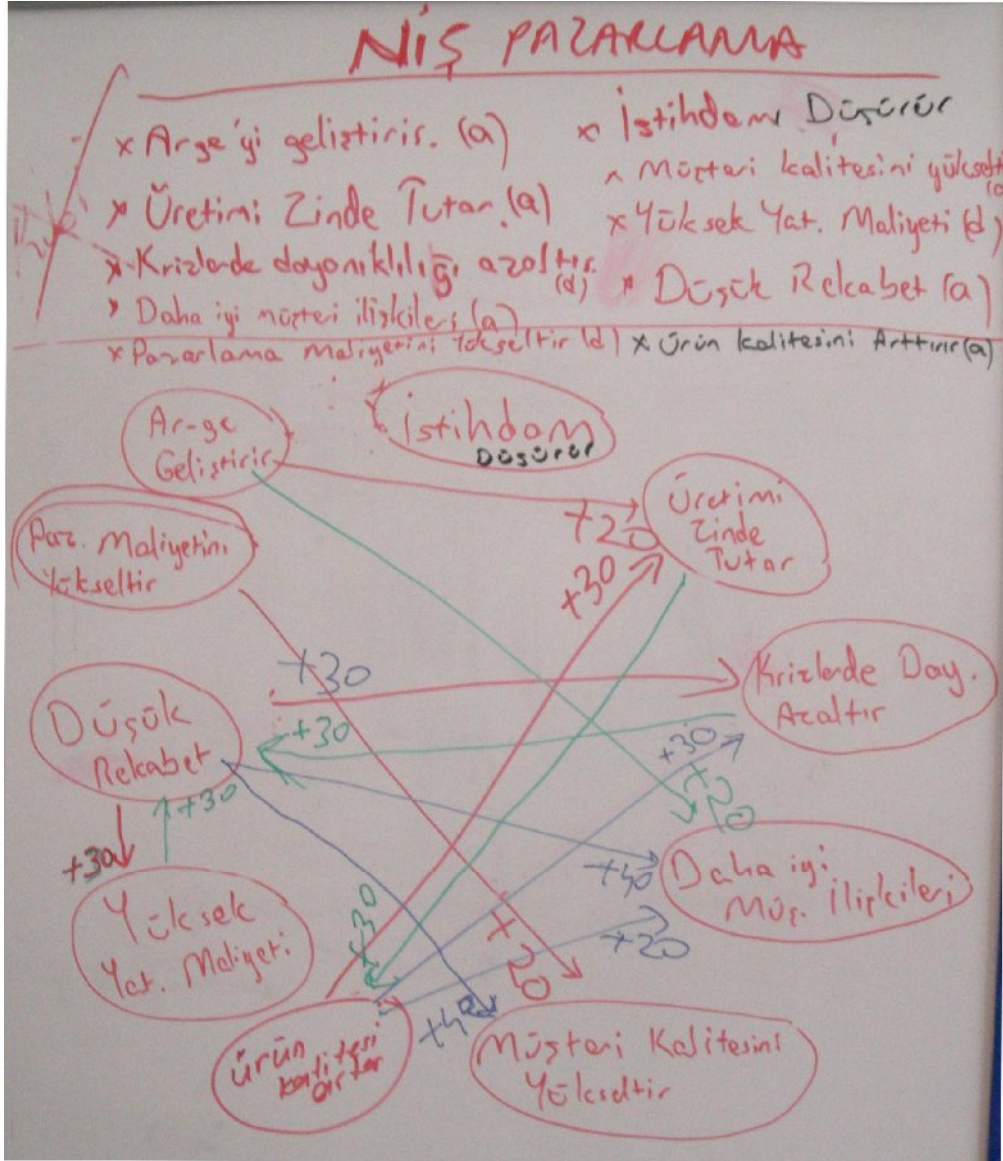 NİŞ PAZARLAMA
x Arge'yi geliştirir. (a)
x Üretimi Zinde Tutar. (a)
x Krizlerde dayanıklılığı azaltır. (d)
x Daha iyi müşteri ilişkileri (a)
x Pazarlama Maliyetini Yükseltir (d)
x İstihdamı Düşürür
x Müşteri kalitesini yükselti
x Yüksek Yat. Maliyeti (d)
x Düşük Rekabet (a)
x Ürün kalitesini Arttırır (a)
Ar-ge
Geliştirir
İstihdam
Düşürür
Üretimi
Zinde
Tutar
+20
+30
Paz. Maliyetini
Yükseltir
+30
Krizlerde Day.
Azaltır
Düşük
Rekabet
+30
+30
+20
+30
+30
Daha iyi
Müş. İlişkileri
+40
+20
Yüksek
Yat. Maliyeti
+30
+20
+40
Ürün
kalitesi
artar
Müşteri Kalitesini
Yükseltir